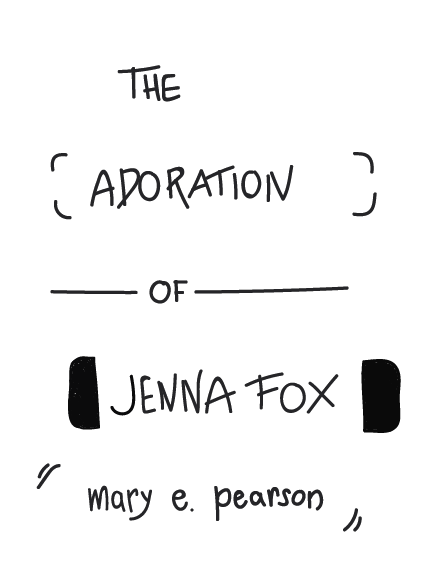 THE
ADORATION
OF
JENNA FOX
" mary e. pearson "